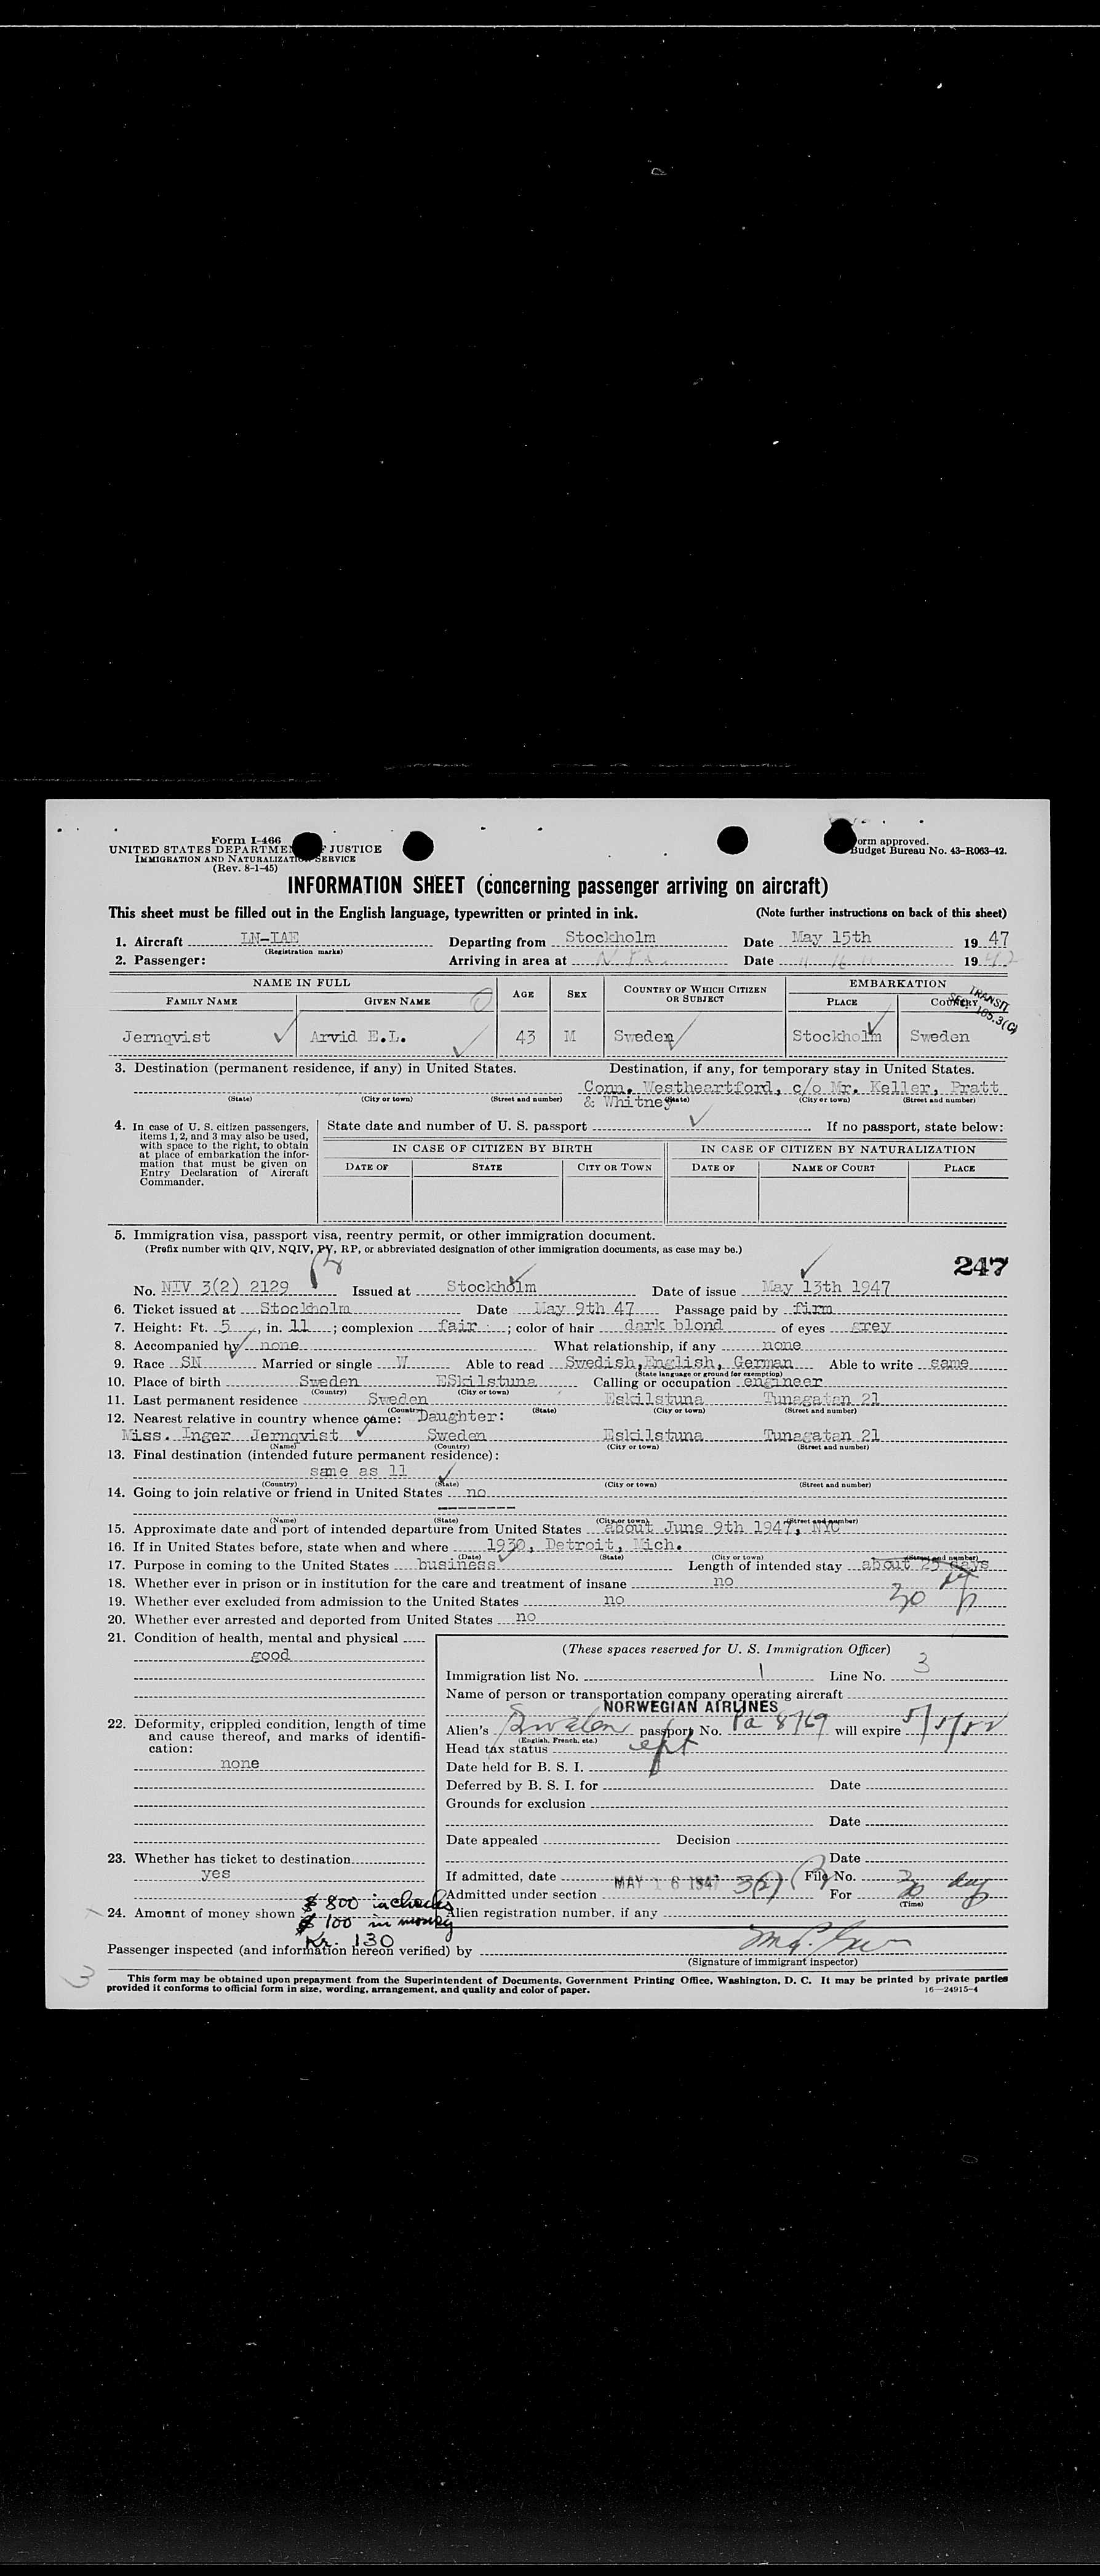 Form I-466
UNITED STATES DEPARTMENT OF JUSTICE
IMMIGRATION AND NATURALIZATION SERVICE
(Rev. 8-1-45)
Form approved.
Budget Bureau No. 43-R063-42.
INFORMATION SHEET (concerning passenger arriving on aircraft)
This sheet must be filled out in the English language, typewritten or printed in ink. (Note further instructions on back of this sheet)
1. Aircraft LN-IAE Departing from Stockholm Date May 15th 1947
(Registration marks)
2. Passenger: Arriving in area at Date 19
NAME IN FULL AGE SEX COUNTRY OF WHICH CITIZEN OR SUBJECT EMBARKATION
FAMILY NAME GIVEN NAME PLACE COUNTRY
TRANSIT
SEC. 165.3(C)
Jernqvist Arvid E.L. 43 M Sweden Stockholm Sweden
3. Destination (permanent residence, if any) in United States. Destination, if any, for temporary stay in United States.
Conn. Westheartford, c/o Mr. Keller, Pratt
(State) (City or town) (Street and number) (State) (City or town) (Street and number)
& Whitney
4. In case of U. S. citizen passengers, items 1, 2, and 3 may also be used, with space to the right, to obtain at place of embarkation the information that must be given on Entry Declaration of Aircraft Commander.
State date and number of U. S. passport If no passport, state below:
IN CASE OF CITIZEN BY BIRTH IN CASE OF CITIZEN BY NATURALIZATION
DATE OF STATE CITY OR TOWN DATE OF NAME OF COURT PLACE
5. Immigration visa, passport visa, reentry permit, or other immigration document.
(Prefix number with QIV, NQIV, PV, RP, or abbreviated designation of other immigration documents, as case may be.)
247
No. NIV 3(2) 2129 Issued at Stockholm Date of issue May 13th 1947
6. Ticket issued at Stockholm Date May 9th 47 Passage paid by firm
7. Height: Ft. 5, in. 11; complexion fair; color of hair dark blond of eyes grey
8. Accompanied by none What relationship, if any none
9. Race SN Married or single W Able to read Swedish, English, German Able to write same
(State language or ground for exemption)
10. Place of birth Sweden ESkilstuna Calling or occupation engineer
(Country) (City or town)
11. Last permanent residence Sweden Eskilstuna Tunagatan 21
(Country) (State) (City or town) (Street and number)
12. Nearest relative in country whence came: Daughter:
Miss. Inger Jernqvist Sweden Eskilstuna Tunagatan 21
(Name) (Country) (City or town) (Street and number)
13. Final destination (intended future permanent residence):
same as 11
(Country) (State) (City or town) (Street and number)
14. Going to join relative or friend in United States no
(Name) (State) (City or town) (Street and number)
15. Approximate date and port of intended departure from United States about June 9th 1947, NYC
16. If in United States before, state when and where 1930, Detroit, Mich.
(Date) (State) (City or town) (Street and number)
17. Purpose in coming to the United States business Length of intended stay about 25 days
18. Whether ever in prison or in institution for the care and treatment of insane no
30
19. Whether ever excluded from admission to the United States no
20. Whether ever arrested and deported from United States no
21. Condition of health, mental and physical
good
22. Deformity, crippled condition, length of time and cause thereof, and marks of identification:
none
23. Whether has ticket to destination
yes
24. Amount of money shown $ 800 in checks
$ 100 in money
Kr. 130
(These spaces reserved for U. S. Immigration Officer)
Immigration list No. 1 Line No. 3
Name of person or transportation company operating aircraft
NORWEGIAN AIRLINES
Alien's Sweden passport No. Pa 8769 will expire 5/5/52
(English, French, etc.)
Head tax status
Date held for B. S. I.
Deferred by B. S. I. for Date
Grounds for exclusion
Date
Date appealed Decision
Date
If admitted, date MAY 16 1947 File No.
Admitted under section 3(2) For 30 day
(Time)
Alien registration number, if any
Passenger inspected (and information hereon verified) by
(Signature of immigrant inspector)
3
This form may be obtained upon prepayment from the Superintendent of Documents, Government Printing Office, Washington, D. C. It may be printed by private parties
provided it conforms to official form in size, wording, arrangement, and quality and color of paper. 16—24915-4